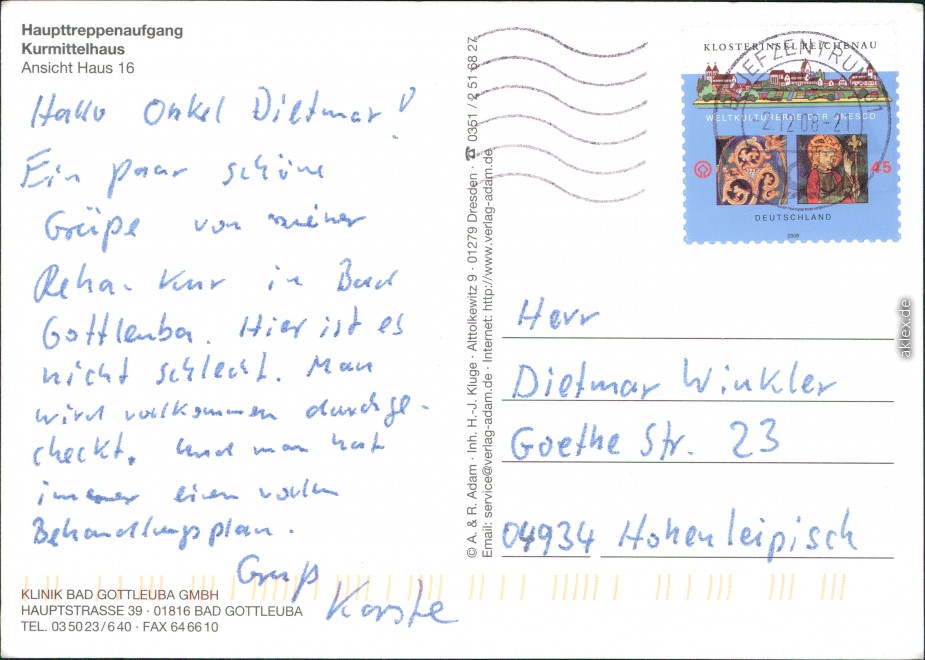 Haupttreppenaufgang
Kurmittelhaus
Ansicht Haus 16
Hallo Onkel Dietmar!
Ein paar schöne
Grüße von meiner
Reha-Kur in Bad
Gottleuba. Hier ist es
nicht schlecht. Man
wird vollkommen durchge-
checkt. Und man hat
immer einen vollen
Behandlungsplan.
Gruß
Karste
KLINIK BAD GOTTLEUBA GMBH
HAUPTSTRASSE 39 · 01816 BAD GOTTLEUBA
TEL. 03 50 23 / 6 40 · FAX 64 66 10
© A. & R. Adam · Inh. H.-J. Kluge · Alttolkewitz 9 · 01279 Dresden · ☎ 0351 / 2 51 68 27
Email: service@verlag-adam.de · Internet: http://www.verlag-adam.de
KLOSTERINSEL REICHENAU
WELTKULTURERBE DER UNESCO
45
DEUTSCHLAND
2008
BRIEFZENTRUM
2.12.08-21
Herr
Dietmar Winkler
Goethe Str. 23
04934 Hohenleipisch
aklex.de